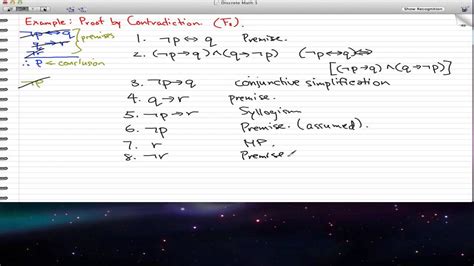 Discrete Math 5
Show Recognition
Example: Proof by Contradiction. (F₀)
¬p ↔ q
q → r
¬r
premises
∴ p ← conclusion
¬p
1. ¬p ↔ q Premise.
2. (¬p → q) ∧ (q → ¬p) (¬p ↔ q) ⟺
[(¬p → q) ∧ (q → ¬p)]
3. ¬p → q conjunctive simplification
4. q → r premise.
5. ¬p → r Syllogism
6. ¬p Premise. (assumed).
7. r MP.
8. ¬r Premise